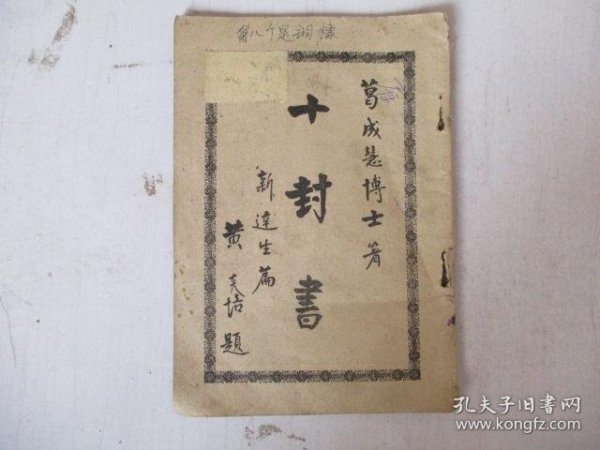 第八个是铜像
葛成慧博士著
十封書
新達生篇
黄炎培題
孔夫子旧书网
www.kongfz.com